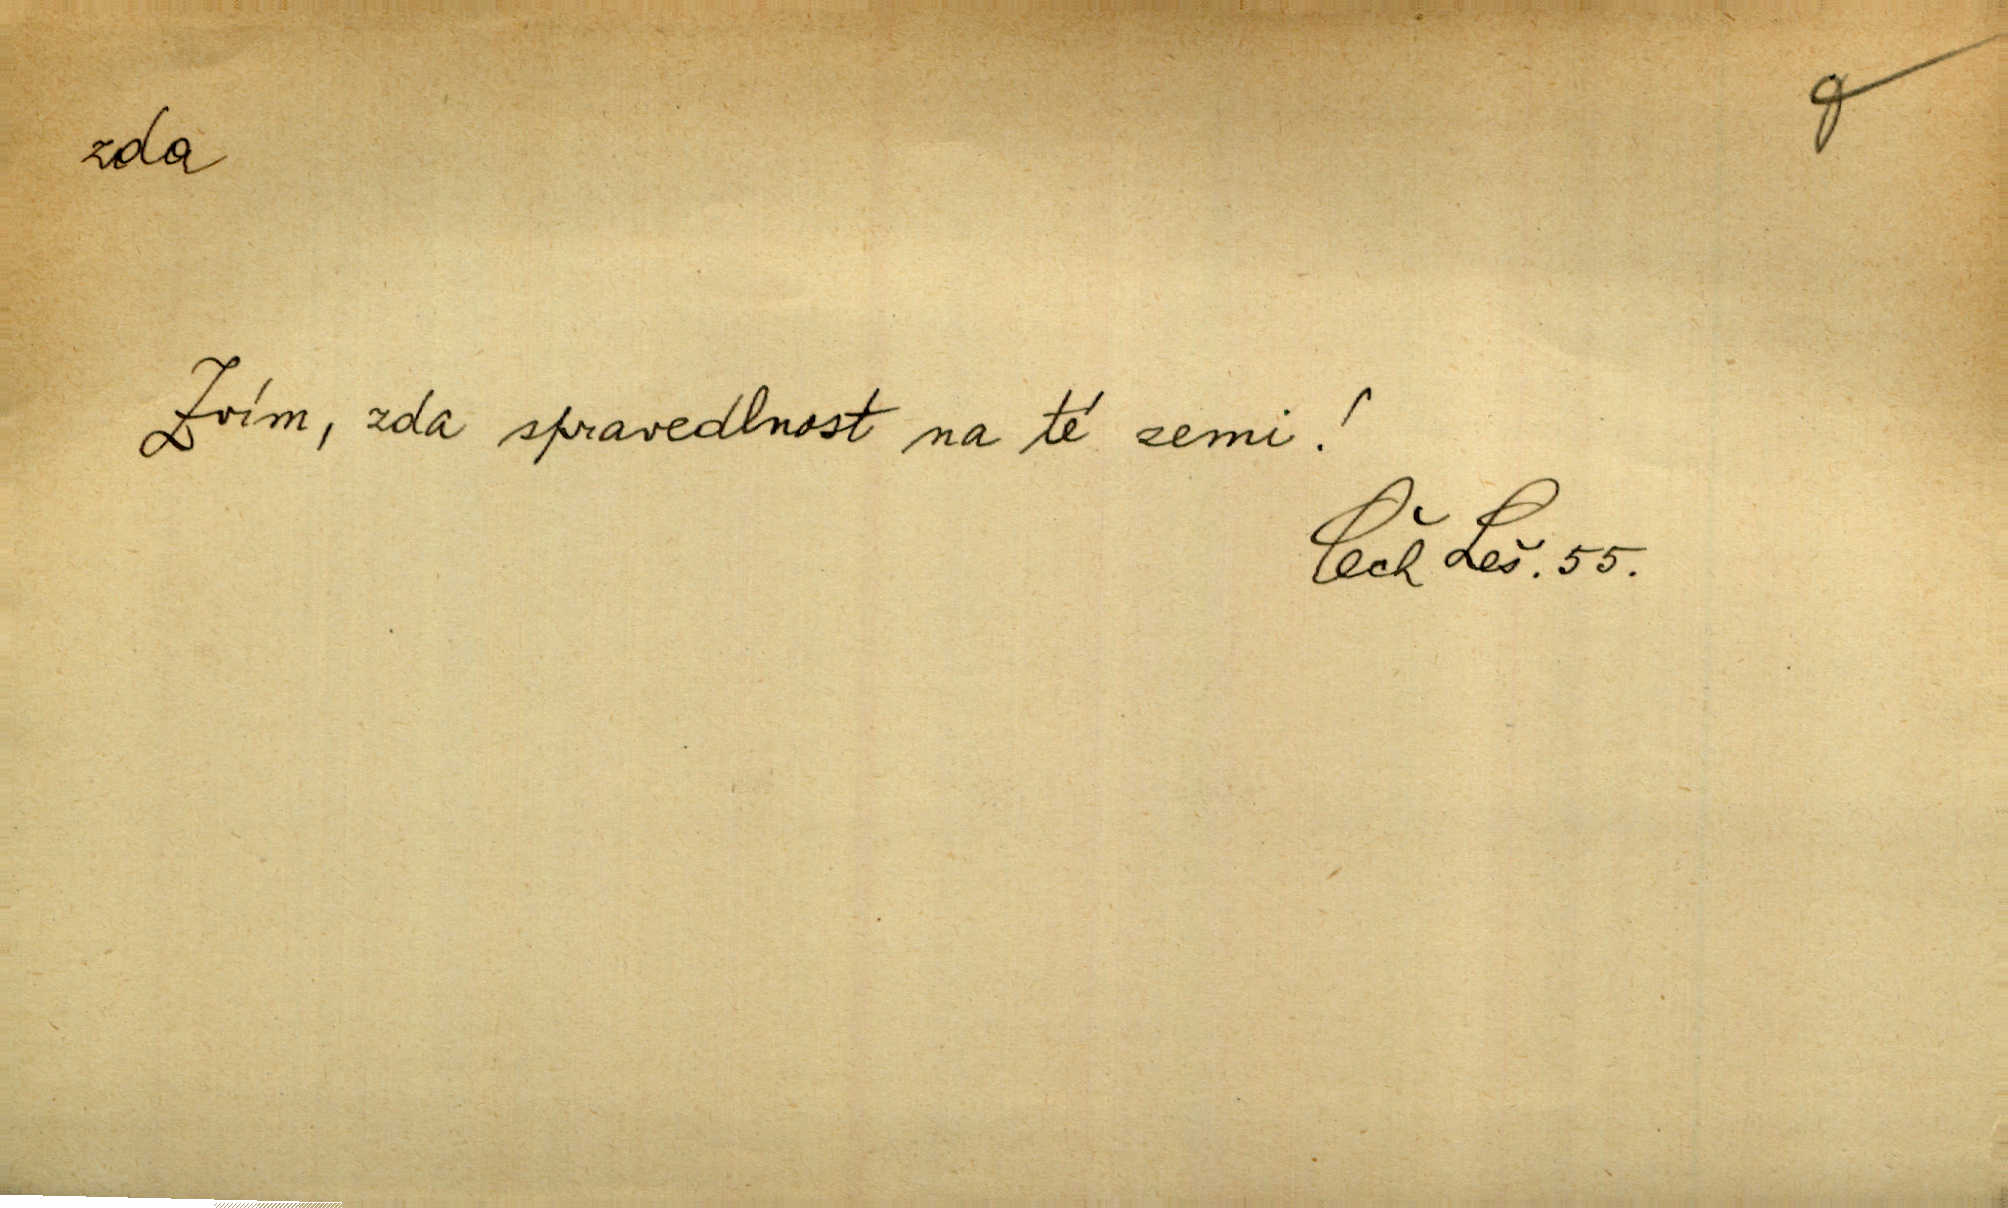 zda
Zvím, zda spravedlnost na té zemi!
Čech Leš. 55.